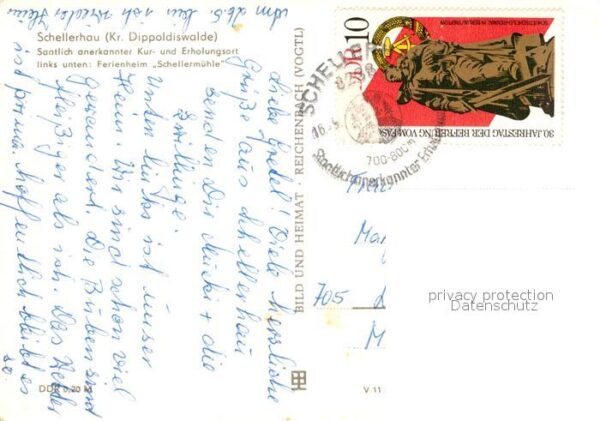 Schellerhau (Kr. Dippoldiswalde)
Staatlich anerkannter Kur- und Erholungsort
links unten: Ferienheim „Schellermühle"
Liebe Gretel! Viele herzliche
Grüße aus Schellerhau
senden Dir Mucki + die
Zwillinge.
Unten links ist unser
Heim. Wir sind schon viel
gewandert. Die Buben sind
fleißiger als ich. Das Wetter
ist prima. Hoffentlich bleibt es
so
Am 26.5. bin ich wieder
BILD UND HEIMAT · REICHENBACH (VOGTL)
DDR 0,20 M
V 11
DDR 10
30. JAHRESTAG DER BEFREIUNG VOM FAS
SCHELLER
16.5
700-800m
Staatlich anerkannter Erho
705
privacy protection
Datenschutz